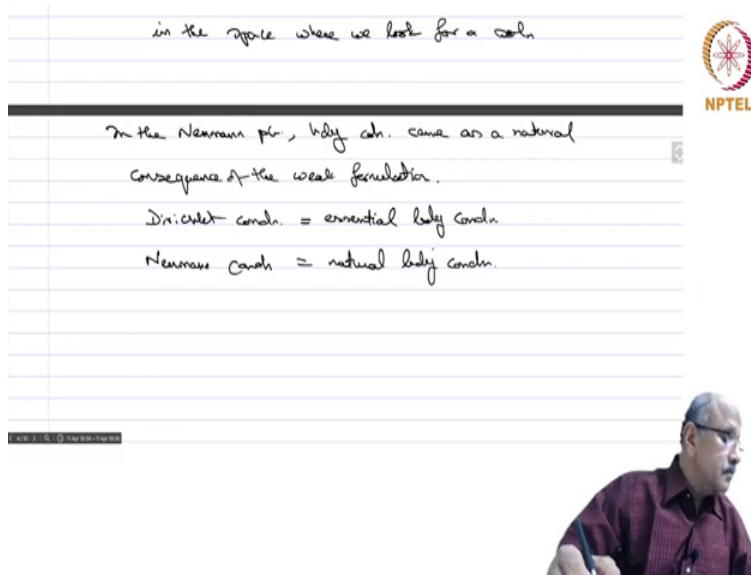 in the space where we look for a soln
NPTEL
In the Neumann pb., bdy cdn. came as a natural
consequence of the weak formulation.
Dirichlet condn. = essential bdy condn
Neumann condn = natural bdy condn.